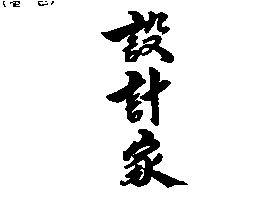 設計家